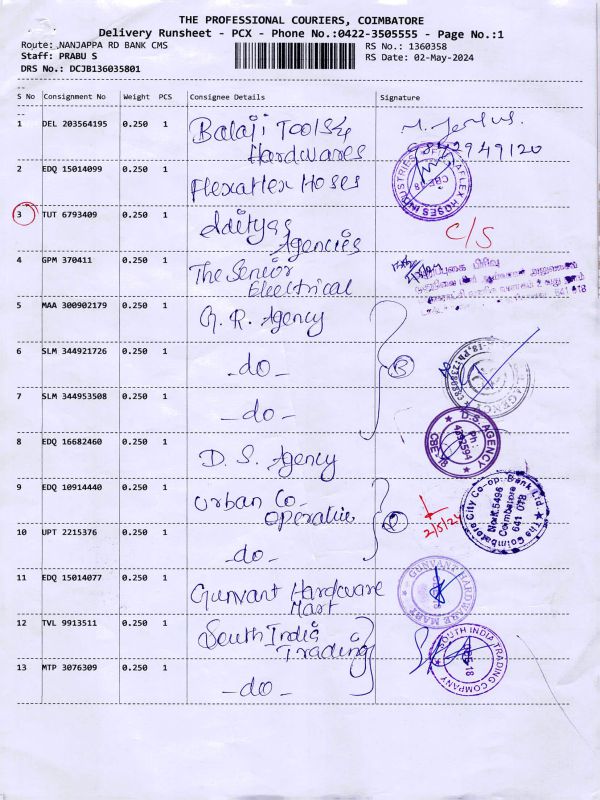 THE PROFESSIONAL COURIERS, COIMBATORE
Delivery Runsheet - PCX - Phone No.:0422-3505555 - Page No.:1
Route: NANJAPPA RD BANK CMS
RS No.: 1360358
Staff: PRABU S
RS Date: 02-May-2024
DRS No.: DCJB136035801
S No Consignment No Weight PCS Consignee Details Signature
1 DEL 203564195 0.250 1 Balaji Tools &
Hardwares
2 EDQ 15014099 0.250 1 Flexaflex Hoses
3 TUT 6793409 0.250 1 Adityas
Agencies C/S
4 GPM 370411 0.250 1 The Senior
Electrical
641 018
5 MAA 300902179 0.250 1 G. R. Agency
6 SLM 344921726 0.250 1 -do- 3
7 SLM 344953508 0.250 1 -do-
D.S. AGENCY
Ph:
4392594
CBE-18
8 EDQ 16682460 0.250 1 D. S. Agency
9 EDQ 10914440 0.250 1 Urban Co-
operative 2
2/5/24
The Coimbatore City Co-op. Bank Ltd.
No.K.5496
Coimbatore
641 018
10 UPT 2215376 0.250 1 -do-
11 EDQ 15014077 0.250 1 Gunvant Hardware
Mart
GUNVANT HARDWARE MART
12 TVL 9913511 0.250 1 South India
Trading
SOUTH INDIA TRADING COMPANY
CBE-18
13 MTP 3076309 0.250 1 -do-